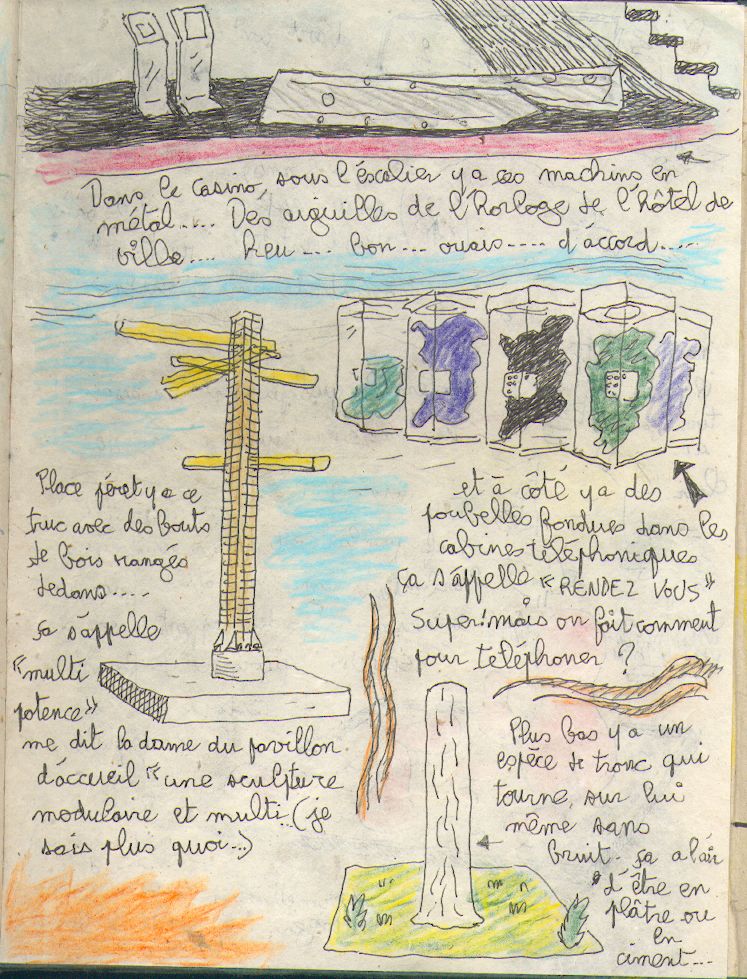 Dans le casino, sous l'éscalier y a ces machins en
métal..... Des aiguilles de l'horloge de l'hôtel de
ville.... heu.... bon... ouais.... d'accord.....
Place péret y a ce
truc avec des bouts
de bois rangés
dedans....
ça s'appelle
"multi
potence"
me dit la dame du pavillon
d'accueil "une sculpture
modulaire et multi..(je
sais plus quoi...)
et à côté y a des
poubelles fondues dans les
cabines téléphoniques
ça s'appelle "RENDEZ VOUS"
Super! mais on fait comment
pour téléphoner ?
Plus bas y a un
espèce de tronc qui
tourne, sur lui
même sans
bruit. ça a l'air
d'être en
plâtre ou
en
ciment...